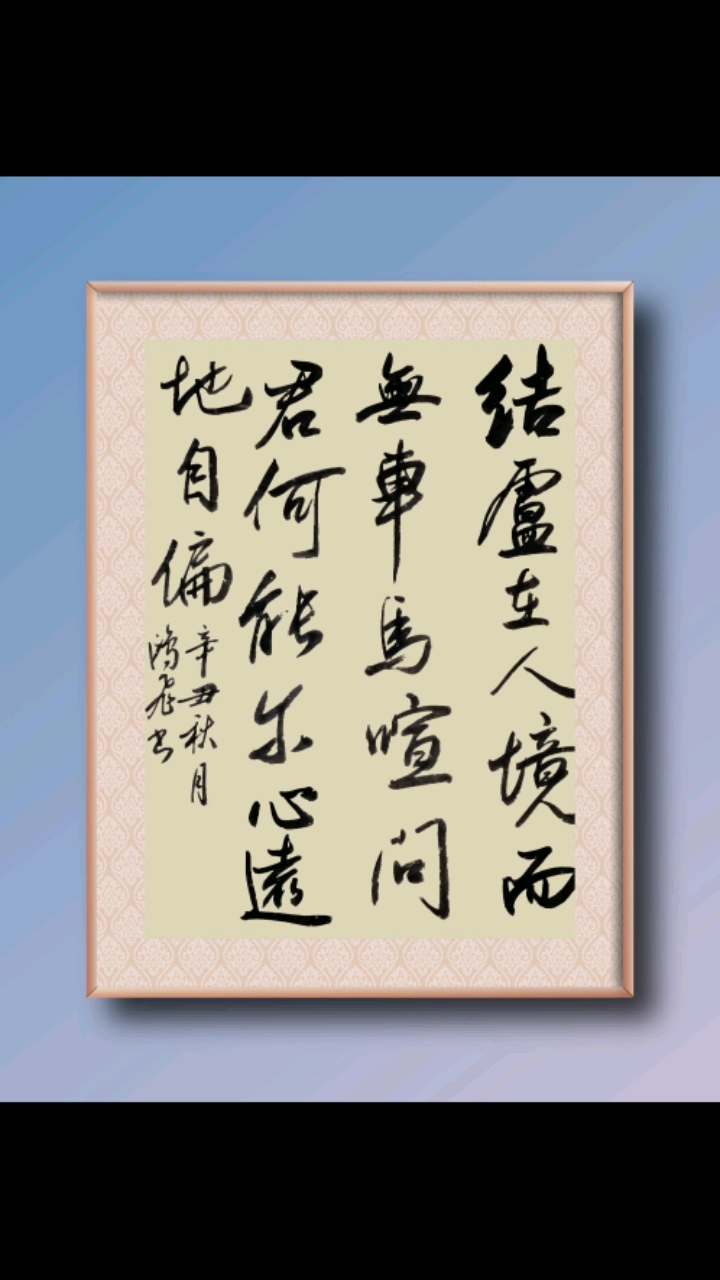 結盧在人境而
無車馬喧問
君何能尔心遠
地自偏
辛丑秋月
鴻飛书